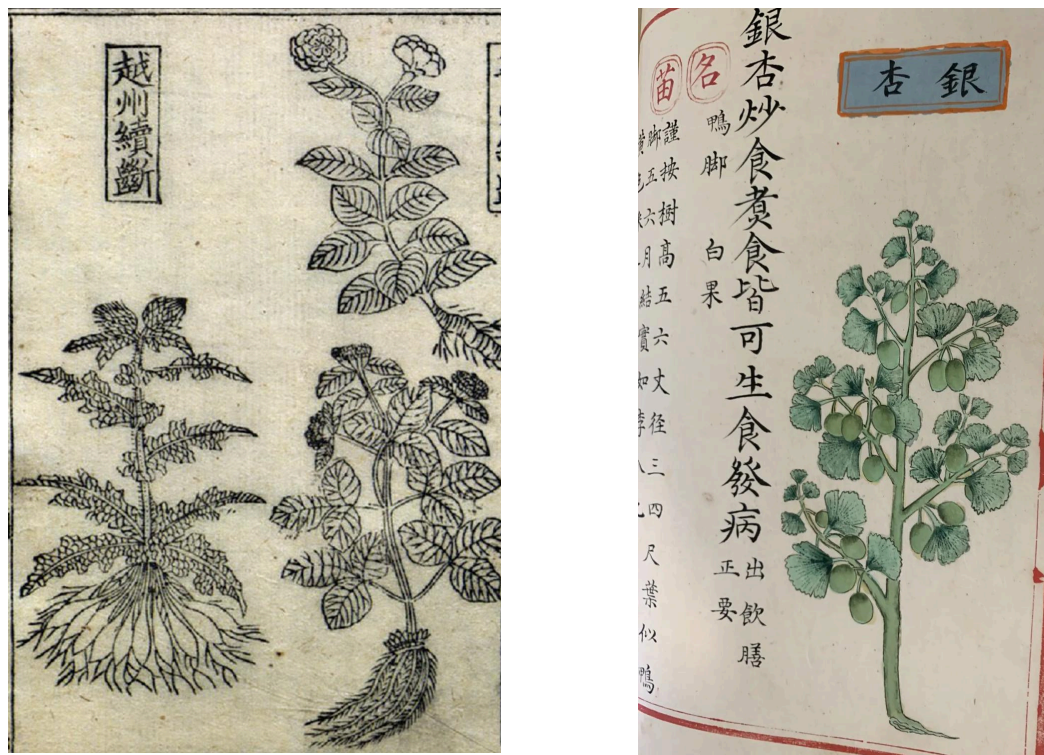 越州續斷
銀杏
銀杏炒食煑食皆可生食發病
出飲膳
正要
名
鴨脚 白果
苗
謹按樹高五六丈径三四尺葉似鴨
脚五六月結實如李